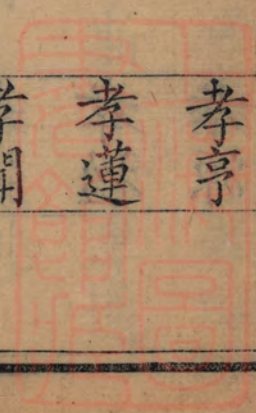 孝亨
孝蓮
孝開